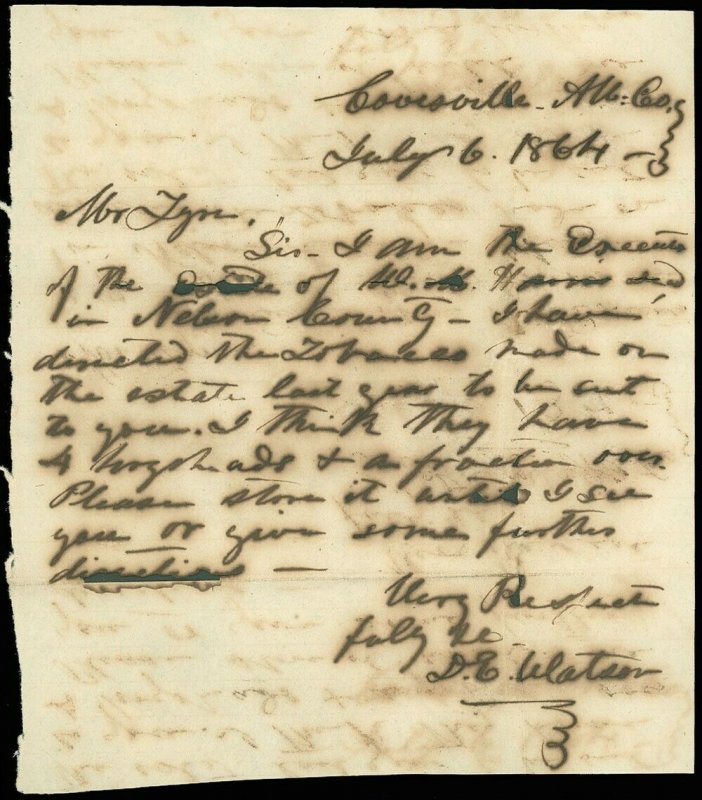 Covesville. Alb: Co.
July 6. 1864 -
Mr Tyre.
Sir - I am the Executor
of the estate of W. M. Harris decd
in Nelson County - I have
directed the Tobacco made on
the estate last year to be sent
to you. I think they have
4 hogsheads & a fraction over.
Please store it until I see
you or give some further
directions -
Very Respect
fully &c
D. E. Watson